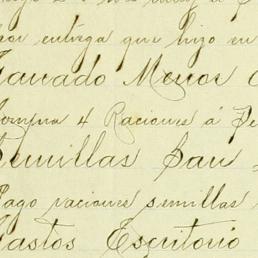 por entrega que hizo en
Ganado Menor
4 Raciones á
Semillas San
Pago raciones semillas
Gastos Escritorio